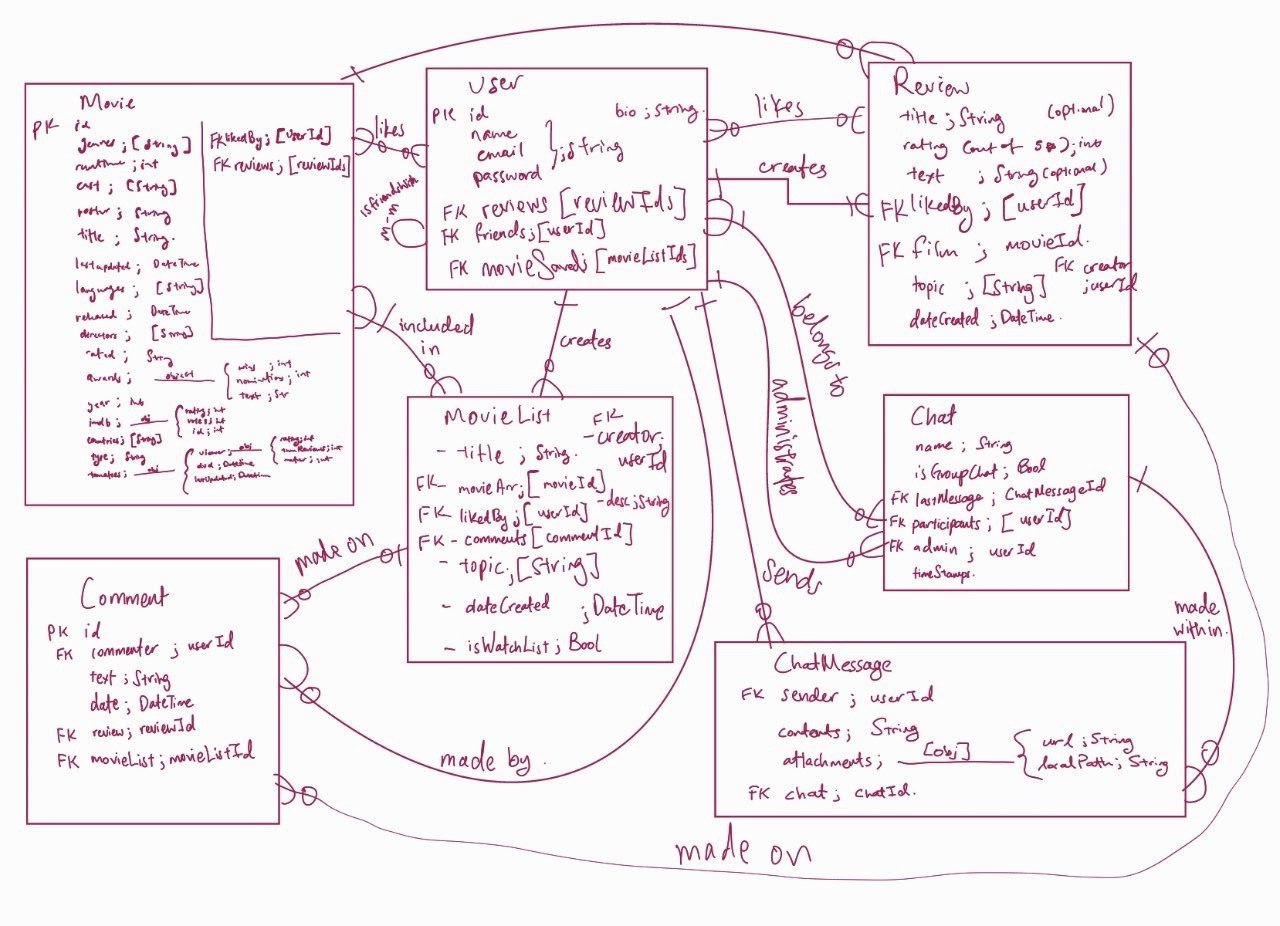 Movie
PK id
genres ; [String]
runtime ; int
cast ; [String]
poster ; String
title ; String.
lastupdated ; DateTime
languages ; [String]
released ; DateTime
directors ; [String]
rated ; String
awards ; object
wins ; int
nominations ; int
text ; Str
year ; int
imdb ; obj
rating ; int
votes ; int
id ; int
countries ; [String]
type ; String
tomatoes ; obj
viewer ; obj
rating ; int
numReviews ; int
meter ; int
dvd ; DateTime
lastUpdated ; DateTime
FK likedBy ; [userId]
FK reviews ; [reviewIds]
likes
isfriendswith
m-m
included
in
User
PK id
name
email
password
; String
bio ; String.
FK reviews [reviewIds]
FK friends ; [userId]
FK movieSaved ; [movieListIds]
likes
creates
creates
belongs to
administrates
sends
Review
title ; String (optional)
rating (out of 5) ; int
text ; String (optional)
FK likedBy ; [userId]
FK film ; movieId.
topic ; [String]
FK creator
; userId
dateCreated ; DateTime.
MovieList
- title ; String.
FK
- creator ;
userId
FK - movieArr ; [movieId]
- desc ; String
FK - likedBy ; [userId]
FK - comments [commentId]
- topic ; [String]
- dateCreated ; DateTime
- isWatchList ; Bool
Chat
name ; String
isGroupChat ; Bool
FK lastMessage ; ChatMessageId
FK participants ; [userId]
FK admin ; userId
timeStamps.
made on
made
within.
Comment
PK id
FK commenter ; userId
text ; String
date ; DateTime
FK review ; reviewId
FK movieList ; movieListId
made by.
ChatMessage
FK sender ; userId
contents ; String
attachments ; [obj]
url ; String
localPath ; String
FK chat ; chatId.
made on